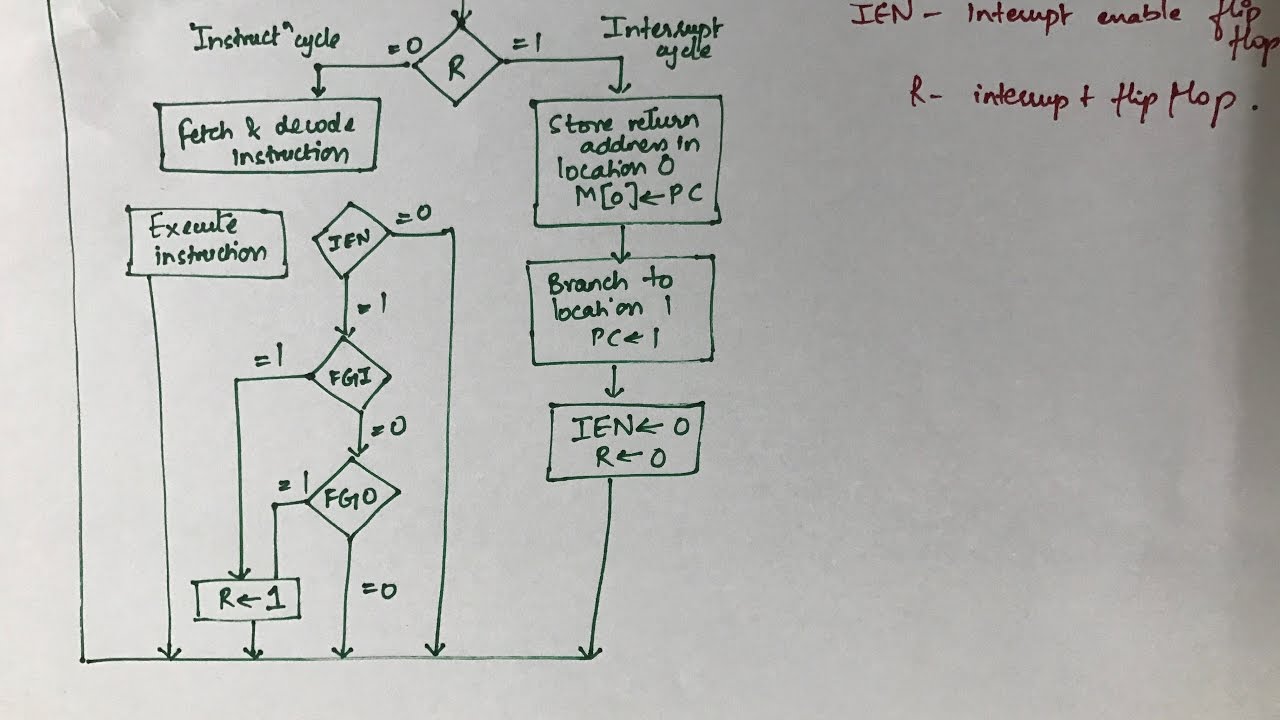 "Instruct" cycle
=0
R
=1
Interrupt
cycle
IEN - Interrupt enable flip
flop
R - interrupt flip flop.
Fetch & decode
instruction
Store return
address in
location 0
M[0]←PC
Execute
instruction
IEN
=0
=1
Branch to
location 1
PC←1
=1
FGI
=0
IEN←0
R←0
=1
FGO
=0
R←1